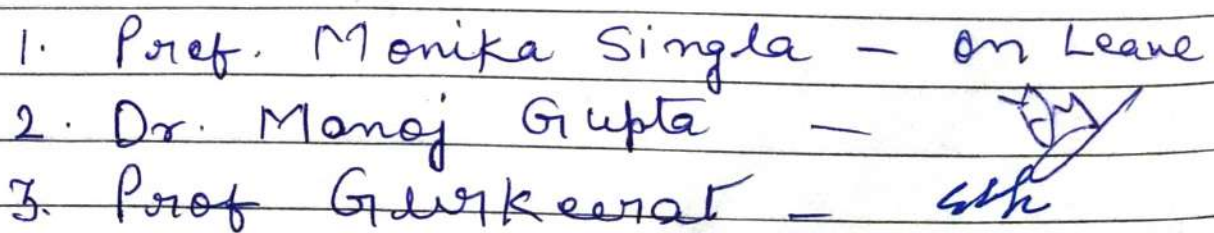 1. Prof. Monika Singla - on Leave
2. Dr. Manoj Gupta -
3. Prof Gurkeerat -